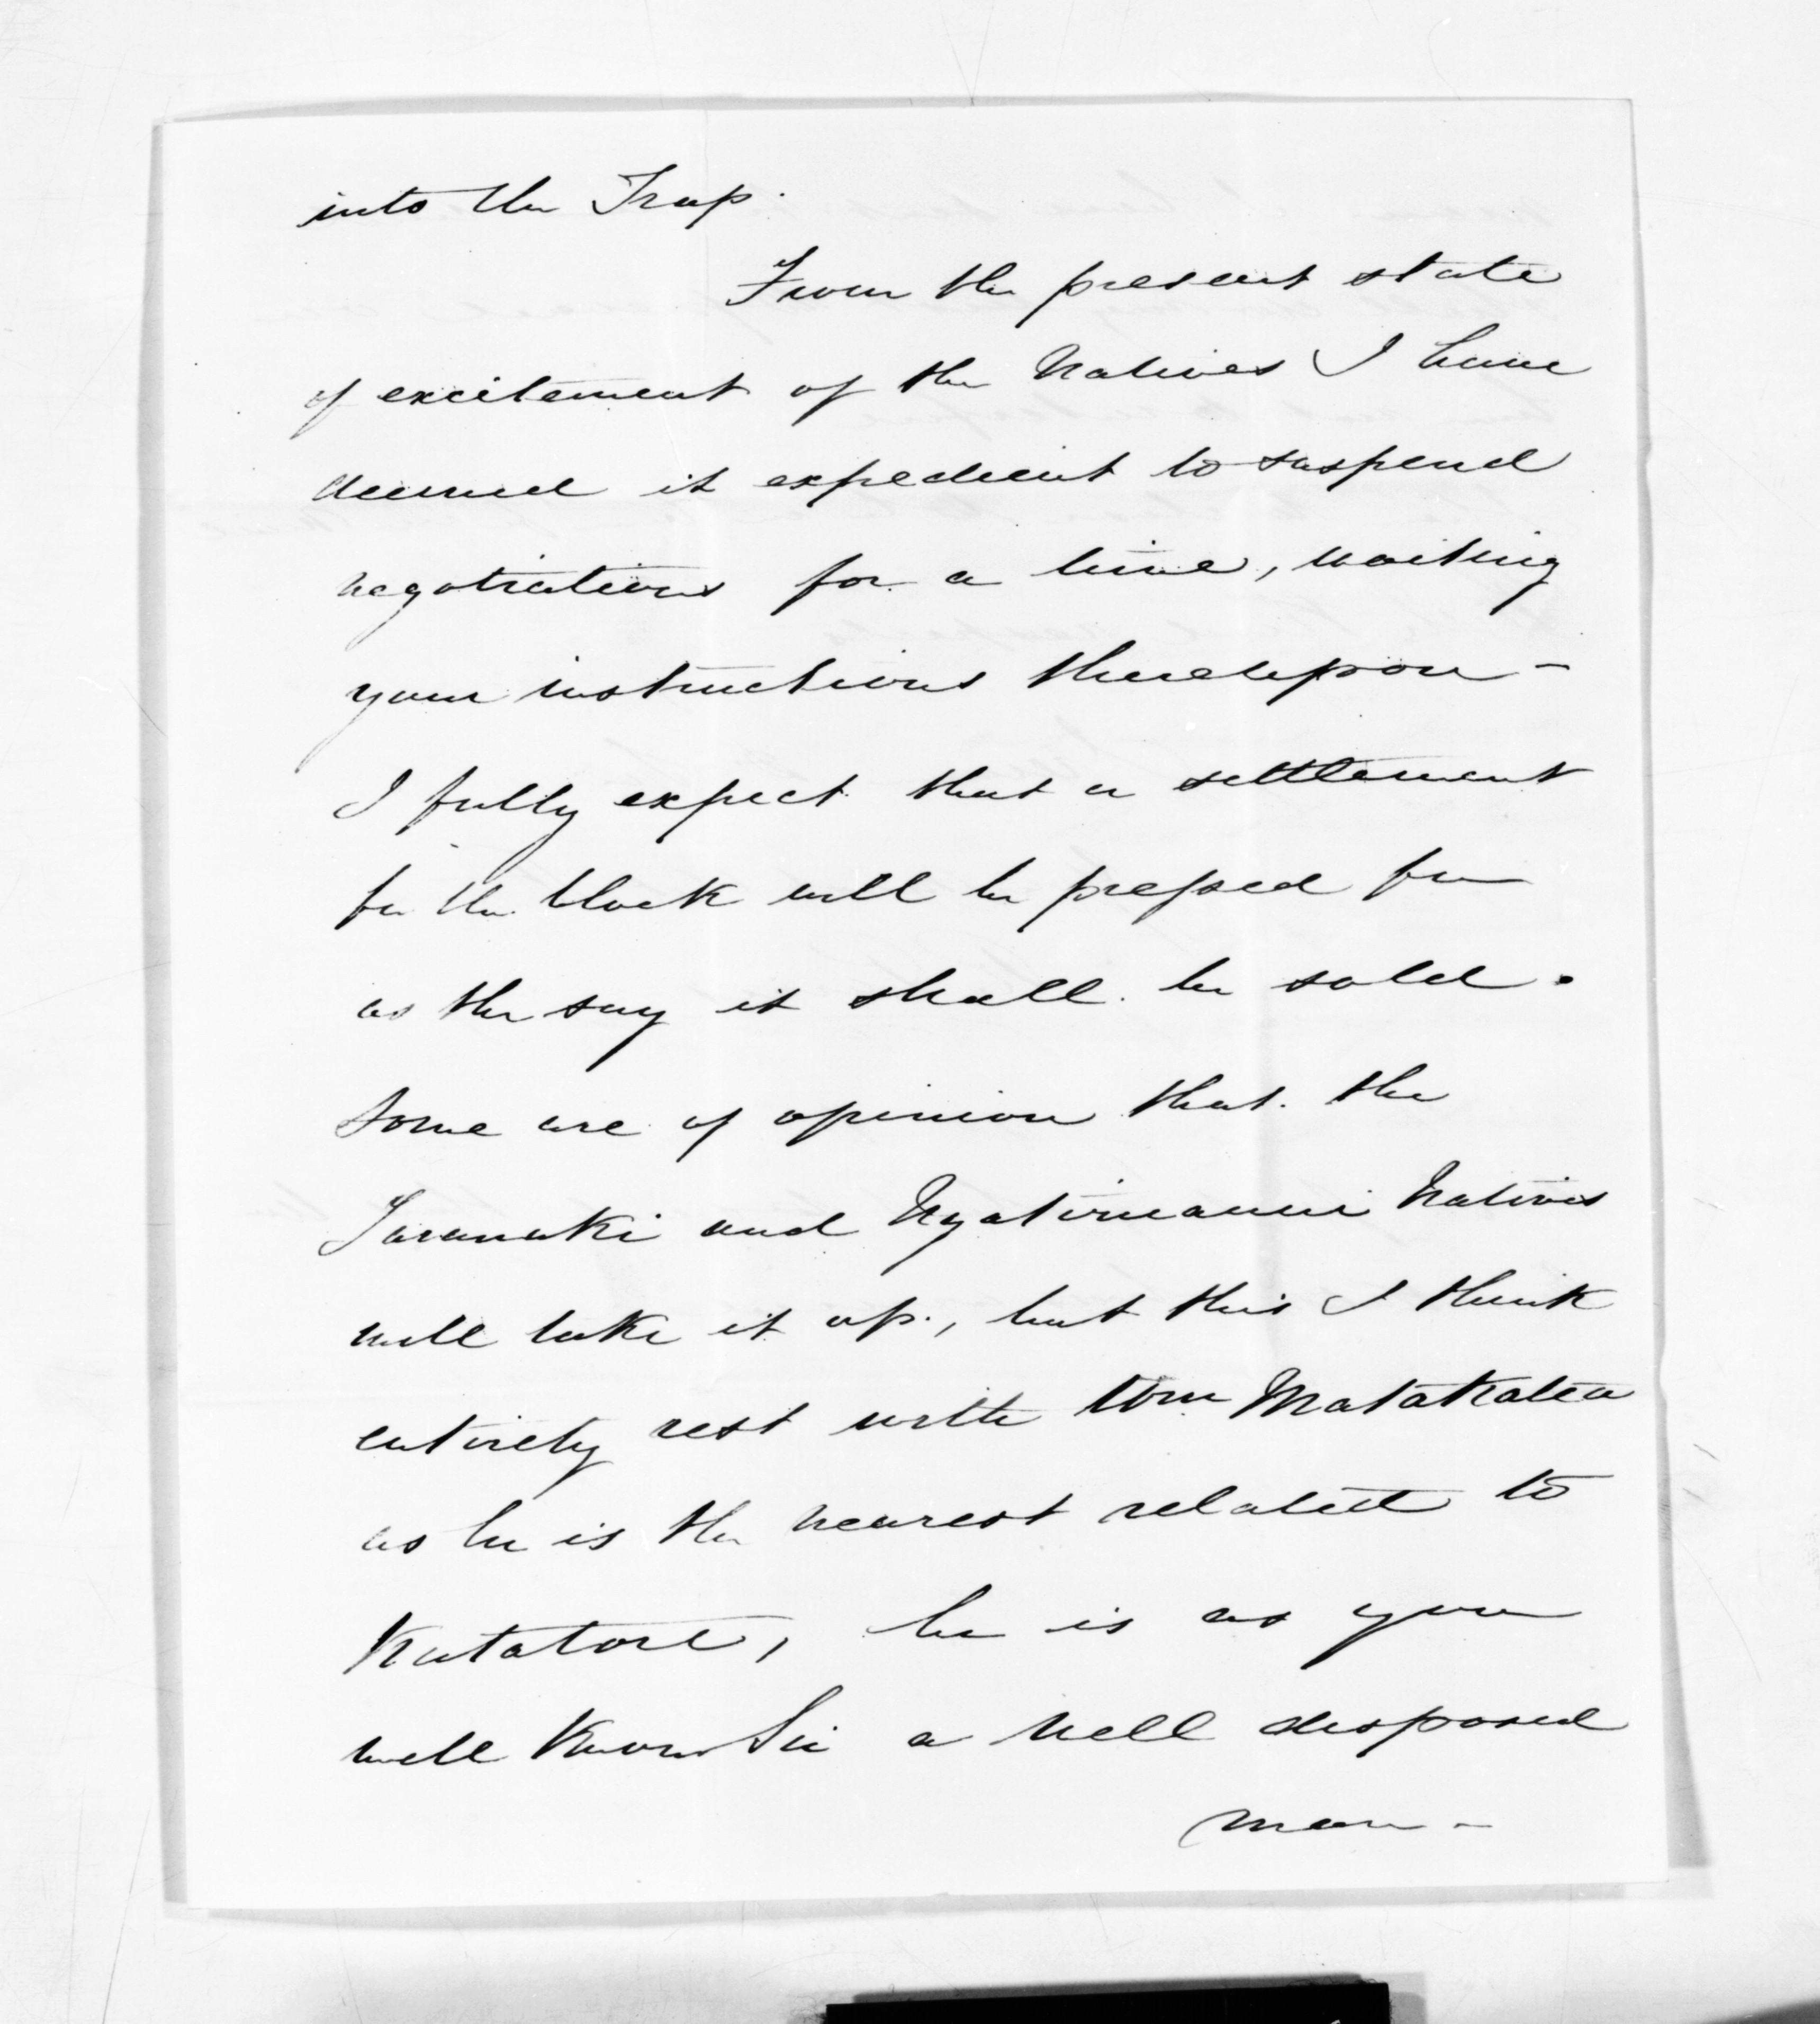 into the Trap.
From the present state
of excitement of the Natives I have
deemed it expedient to suspend
negotiations for a time, waiting
your instructions thereupon -
I fully expect that a settlement
for the block will be pressed for
as the say it shall be sold.
Some are of opinion that the
Taranaki and Ngatiruanui Natives
will take it up, but this I think
entirely rest with Wm Matakatea
as he is the nearest related to
Katatore, he is as you
well know Sir a well disposed
man -